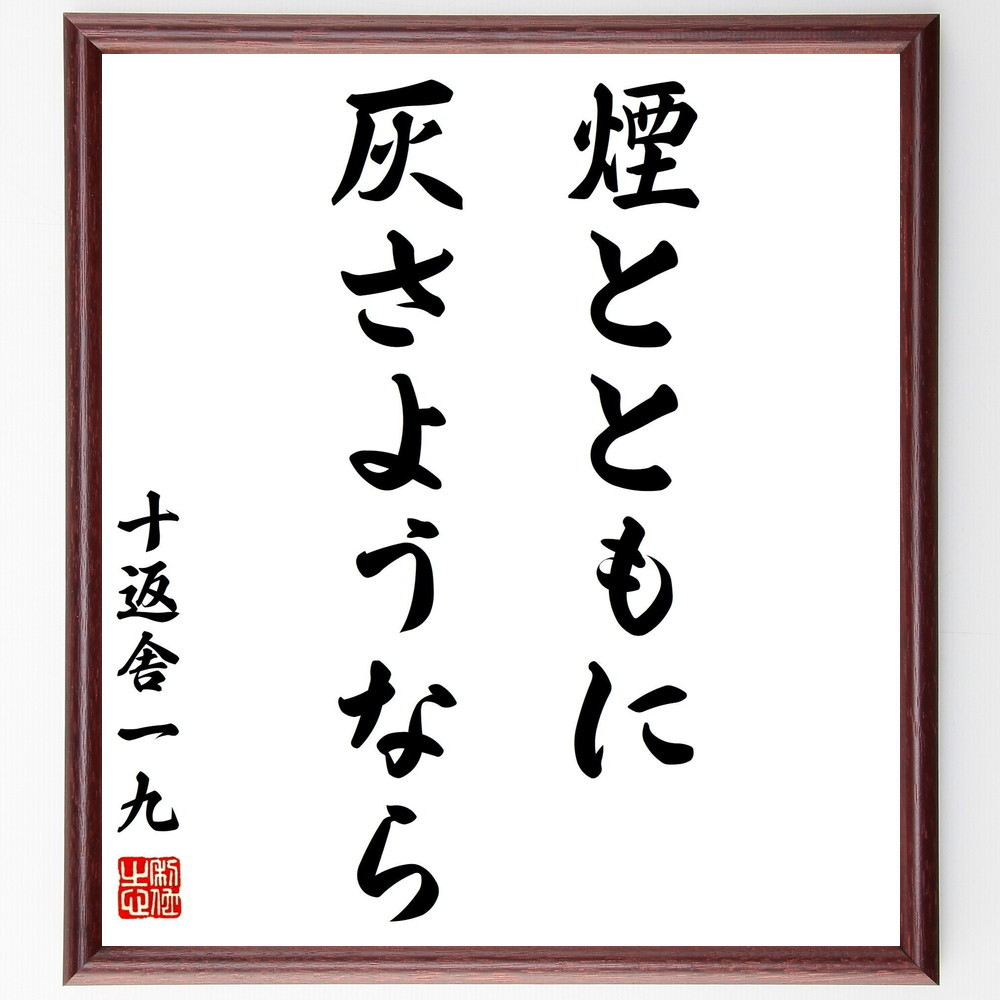 煙とともに
灰さようなら
十返舎一九